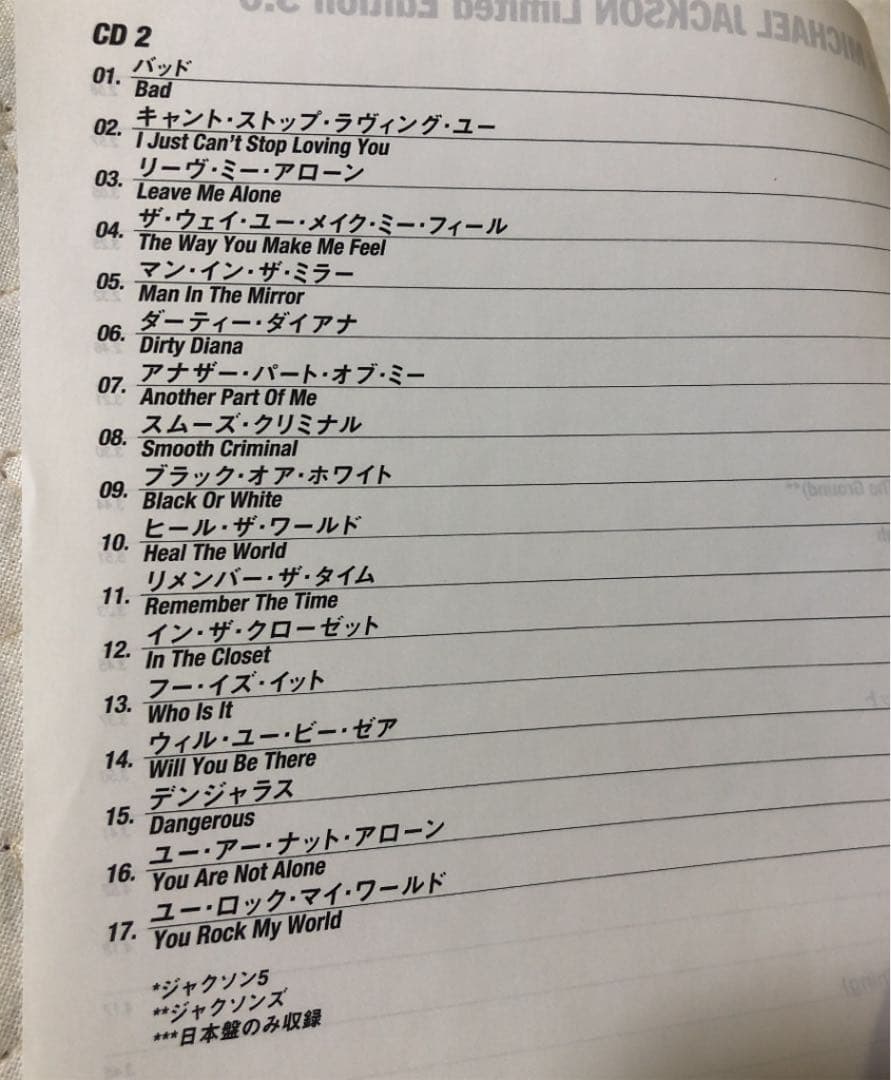 MICHAEL JACKSON Limited Edition 3.0
CD 2
01. バッド
Bad
02. キャント・ストップ・ラヴィング・ユー
I Just Can't Stop Loving You
03. リーヴ・ミー・アローン
Leave Me Alone
04. ザ・ウェイ・ユー・メイク・ミー・フィール
The Way You Make Me Feel
05. マン・イン・ザ・ミラー
Man In The Mirror
06. ダーティー・ダイアナ
Dirty Diana
07. アナザー・パート・オブ・ミー
Another Part Of Me
08. スムーズ・クリミナル
Smooth Criminal
09. ブラック・オア・ホワイト
Black Or White
10. ヒール・ザ・ワールド
Heal The World
11. リメンバー・ザ・タイム
Remember The Time
12. イン・ザ・クローゼット
In The Closet
13. フー・イズ・イット
Who Is It
14. ウィル・ユー・ビー・ゼア
Will You Be There
15. デンジャラス
Dangerous
16. ユー・アー・ナット・アローン
You Are Not Alone
17. ユー・ロック・マイ・ワールド
You Rock My World
*ジャクソン5
**ジャクソンズ
***日本盤のみ収録